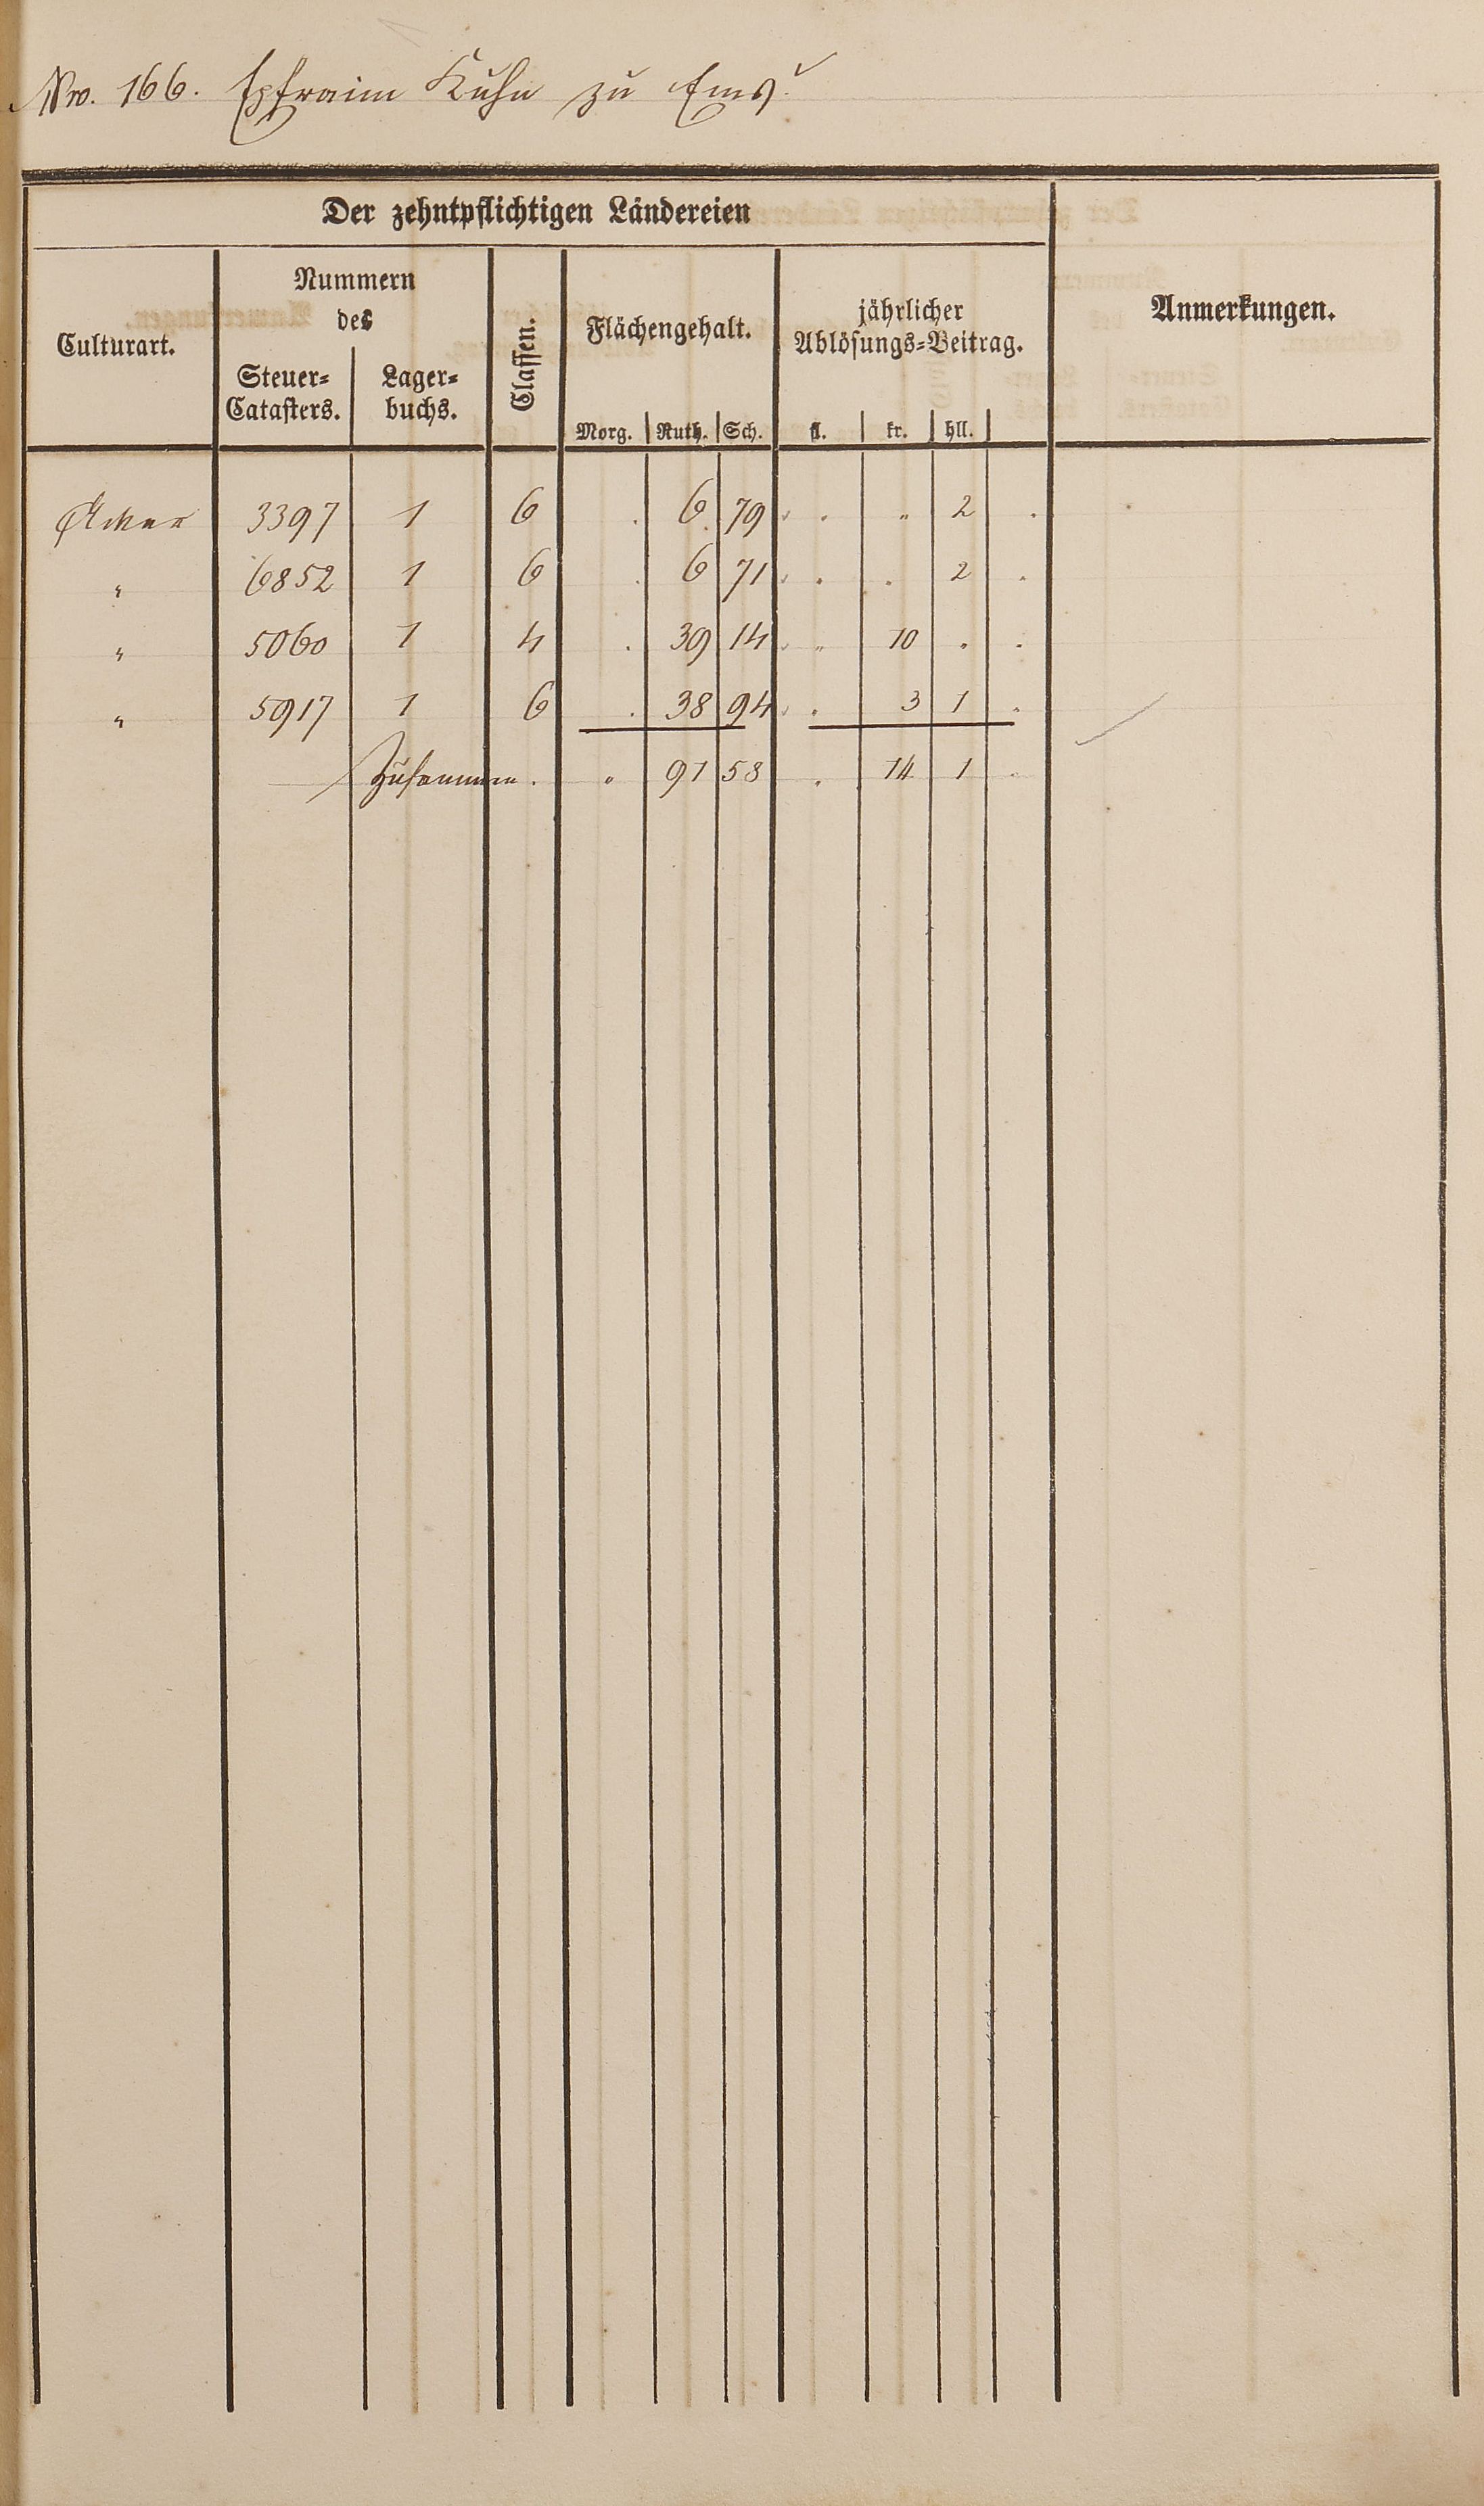 Nro. 166. Ephraim Kuhn zu Ems
Der zehntpflichtigen Ländereien
Culturart.
Nummern
des
Steuer=
Catasters.
Lager=
buchs.
Classen.
Flächengehalt.
Morg. Ruth. Sch.
jährlicher
Ablösungs=Beitrag.
fl. kr. hll.
Anmerkungen.
Acker 3397 1 6 . 6 79 . „ 2 .
„ 6852 1 6 . 6 71 . . 2 .
„ 5060 1 4 . 39 14 „ 10 . .
„ 5917 1 6 . 38 94 . 3 1 .
Zusammen. „ 91 58 . 14 1 .